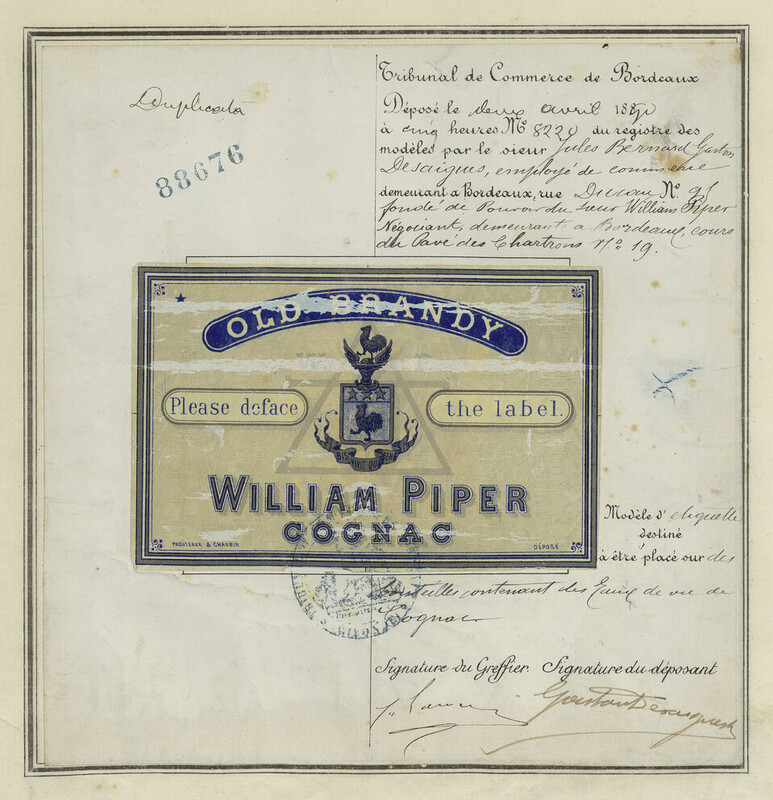 Duplicata
88676
Tribunal de Commerce de Bordeaux
Déposé le deux avril 1890
à cinq heures Nº 8220 du registre des
modèles par le sieur Jules Bernard Gaston
Desaigues, employé de commerce
demeurant a Bordeaux, rue Nº
fondé de Pouvoir du sieur William Piper
Négociant, demeurant a Bordeaux, cours
du Pavé des Chartrons Nº 19.
OLD BRANDY
Please deface the label.
WILLIAM PIPER
COGNAC
DÉPOSÉ
Modèle d'etiquette
destiné
à être placé sur des
bouteilles contenant des Eaux de vie de
Cognac
Signature du Greffier. Signature du déposant